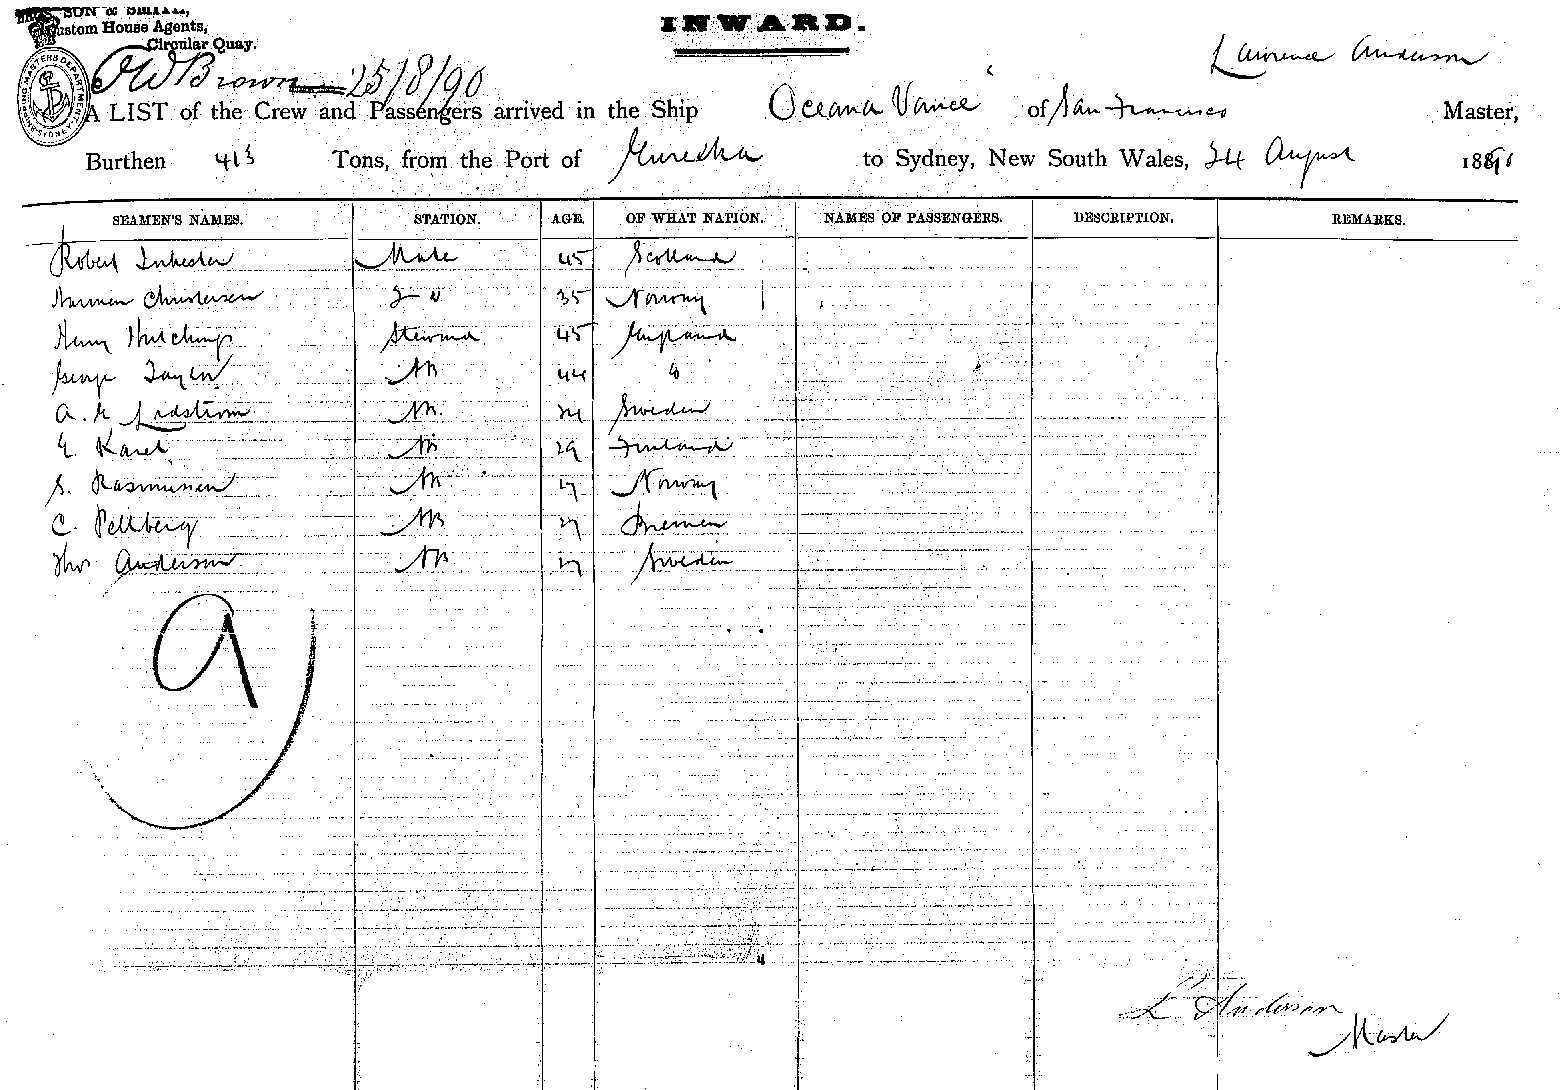 SON & SMITH,
Custom House Agents,
Circular Quay.
INWARD.
SHIPPING MASTERS DEPARTMENT SYDNEY
Lawrence Anderson
J W Brown 25/8/90
A LIST of the Crew and Passengers arrived in the Ship Oceana Vance of San Francisco Master,
Burthen 413 Tons, from the Port of to Sydney, New South Wales, 24 August 1890
SEAMEN'S NAMES. STATION. AGE. OF WHAT NATION. NAMES OF PASSENGERS. DESCRIPTION. REMARKS.
Robert Inkester Mate 45 Scotland
Norman Christensen 2 " 35 Norway
Henry Hutchings Steward 45 England
George Taylor AB 44 "
A. Lindstrom AB 24 Sweden
E. Karel AB 29 Finland
S. Rasmussen AB 27 Norway
C. Pellberg AB 27 Bremen
Thos Anderson AB 27 Sweden
9
L Anderson
Master